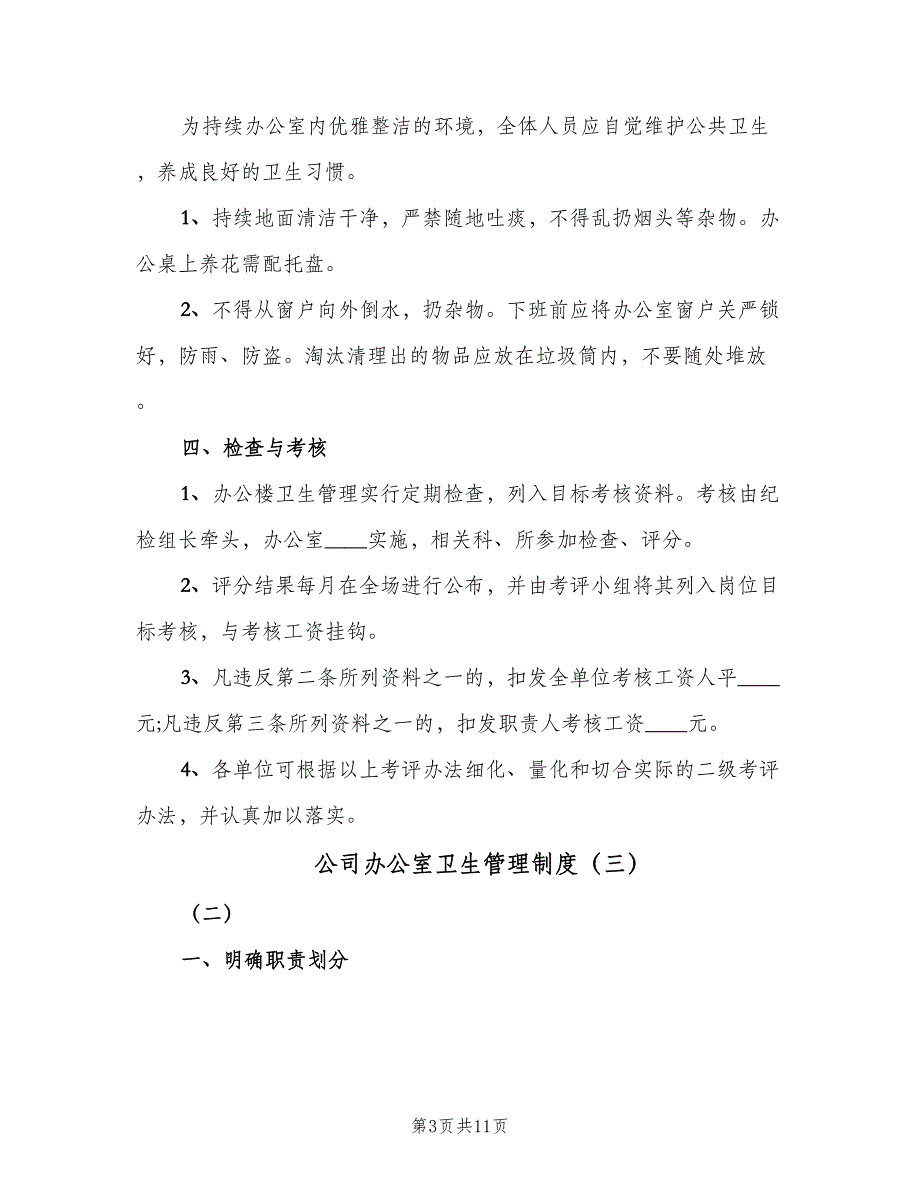 为持续办公室内优雅整洁的环境，全体人员应自觉维护公共卫生
，养成良好的卫生习惯。
1、持续地面清洁干净，严禁随地吐痰，不得乱扔烟头等杂物。办
公桌上养花需配托盘。
2、不得从窗户向外倒水，扔杂物。下班前应将办公室窗户关严锁
好，防雨、防盗。淘汰清理出的物品应放在垃圾筒内，不要随处堆放
。
四、检查与考核
1、办公楼卫生管理实行定期检查，列入目标考核资料。考核由纪
检组长牵头，办公室____实施，相关科、所参加检查、评分。
2、评分结果每月在全场进行公布，并由考评小组将其列入岗位目
标考核，与考核工资挂钩。
3、凡违反第二条所列资料之一的，扣发全单位考核工资人平____
元;凡违反第三条所列资料之一的，扣发职责人考核工资____元。
4、各单位可根据以上考评办法细化、量化和切合实际的二级考评
办法，并认真加以落实。
公司办公室卫生管理制度（三）
（二）
一、明确职责划分
第3页共11页